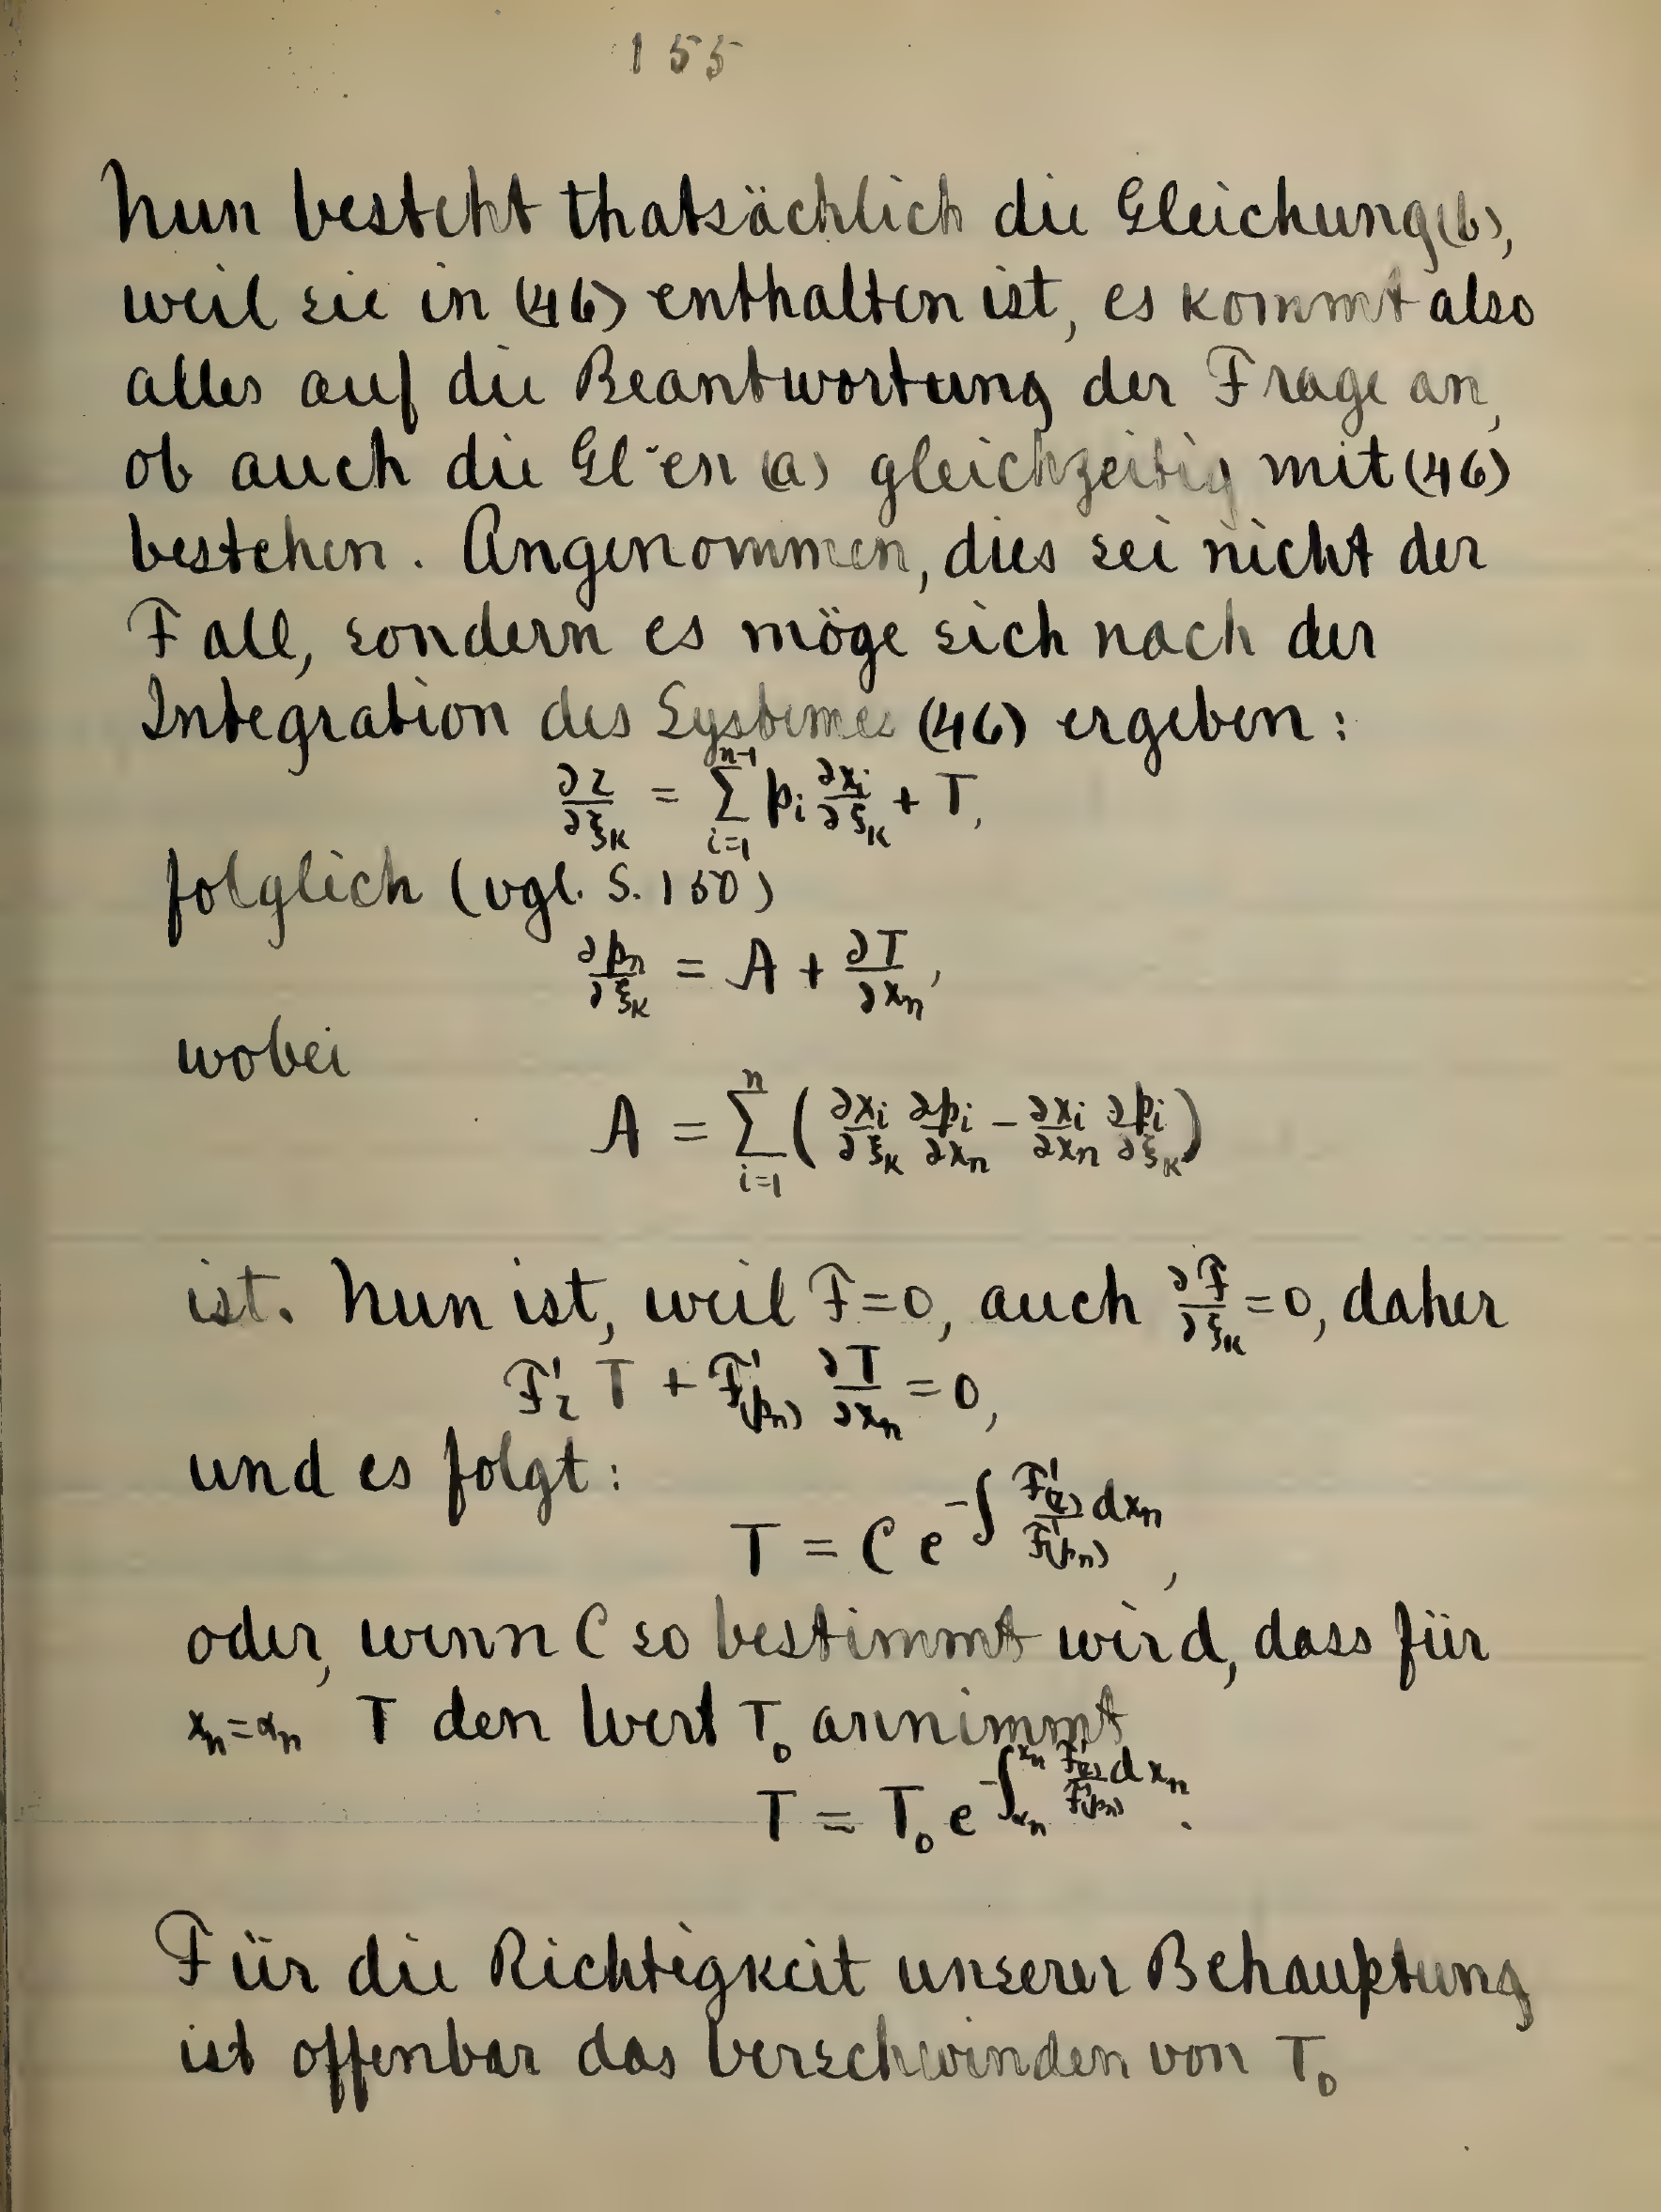 155
Nun besteht thatsächlich die Gleichung (b),
weil sie in (46) enthalten ist, es kommt also
alles auf die Beantwortung der Frage an,
ob auch die Gl-en (a) gleichzeitig mit (46)
bestehen. Angenommen, dies sei nicht der
Fall, sondern es möge sich nach der
Integration des Systemes (46) ergeben:
∂z/∂ξ_k = ∑_{i=1}^{n-1} p_i ∂x_i/∂ξ_k + T,
folglich (vgl. S. 150)
∂p_n/∂ξ_k = A + ∂T/∂x_n,
wobei
A = ∑_{i=1}^{n} (∂x_i/∂ξ_k ∂p_i/∂x_n − ∂x_i/∂x_n ∂p_i/∂ξ_k)
ist. Nun ist, weil F=0, auch ∂F/∂ξ_k = 0, daher
F'_z T + F'_(p_n) ∂T/∂x_n = 0,
und es folgt:
T = C e^{−∫ F'_(z)/F'_(p_n) dx_n},
oder, wenn C so bestimmt wird, dass für
x_n = α_n T den Wert T_0 annimmt
T = T_0 e^{−∫_{α_n}^{x_n} F'_(z)/F'_(p_n) dx_n}.
Für die Richtigkeit unserer Behauptung
ist offenbar das Verschwinden von T_0